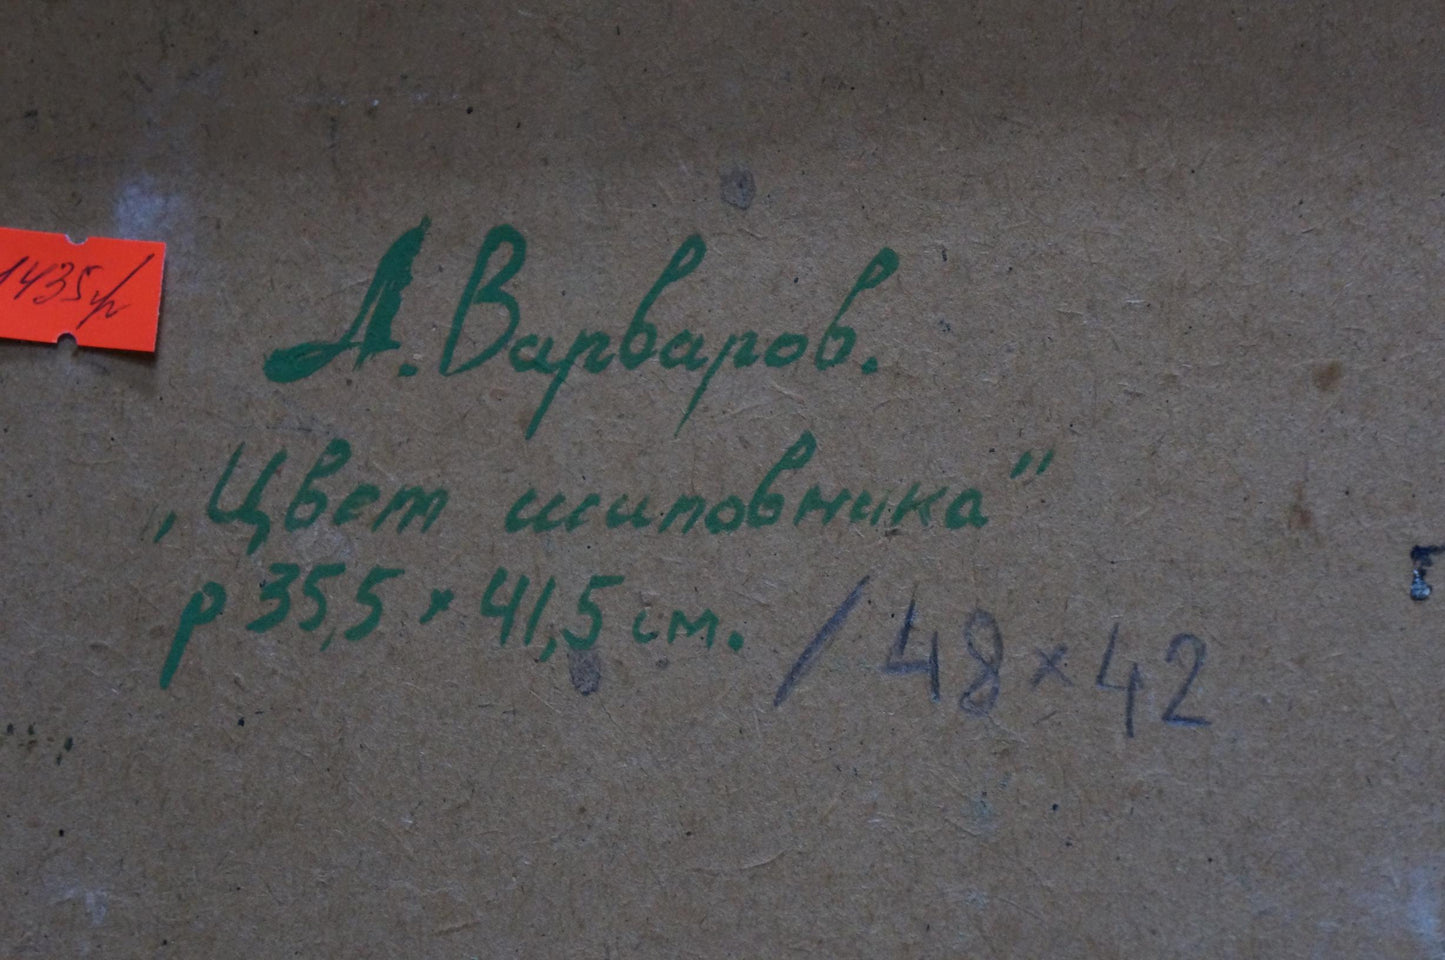 А. Варваров.
„Цвет шиповника"
р 35,5 × 41,5 см. / 48 × 42
1435 р